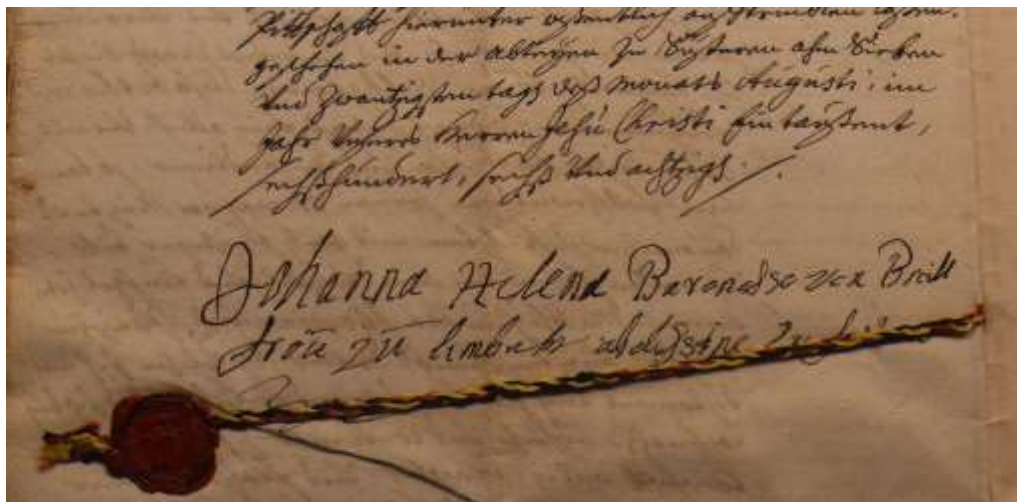 Pittschafft hierunter offentlich auffdrucken lassen.
geschehen in der Abteyen zu Süsteren ahm Sieben
Und Zwantzigsten tagh deß Monats Augusti, im
Jahr Unsers Herren Jesu Christi Ein taußent,
sechßhundert, sechß Und achtzigh.
Johanna Helena Baronesse von Brill
frou zu